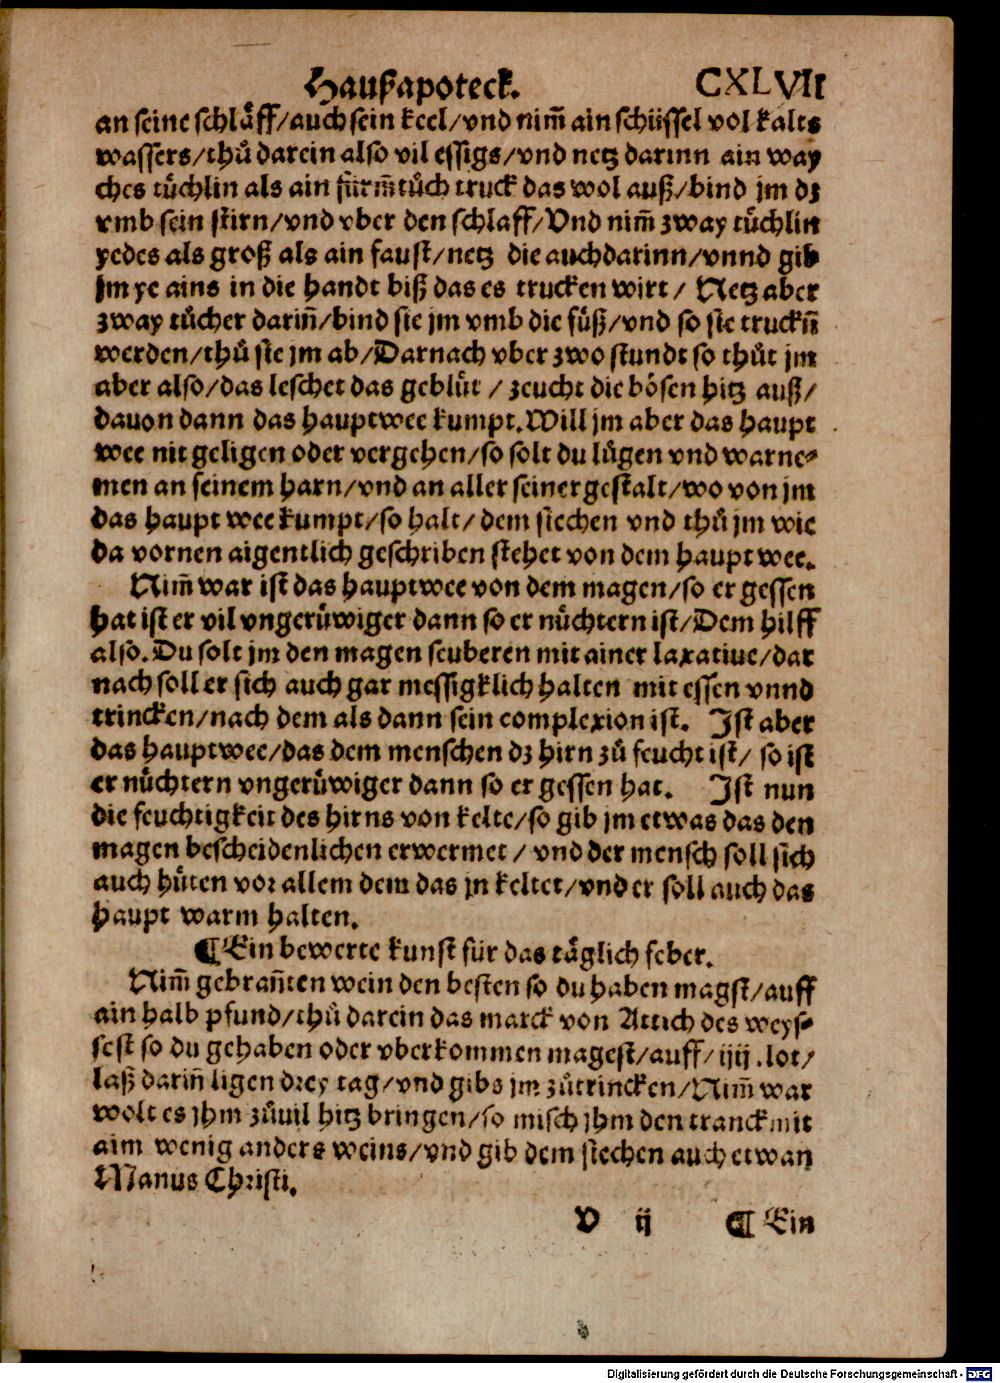 Haußapoteck. CXLVII
an seine schlåff/auch sein keel/vnd nim̃ ain schüssel vol kalts
wassers/thů darein also vil essigs/vnd netz darinn ain way
ches tůchlin als ain fürm̃tůch truck das wol auß/bind jm dz
vmb sein stirn/vnd vber den schlaff/Vnd nim̃ zway tůchlin
yedes als groß als ain faust/netz die auch darinn/vnnd gib
jm ye ains in die handt biß das es trucken wirt/ Netz aber
zway tůcher dariñ/bind sie jm vmb die fůß/vnd so sie truckñ
werden/thů sie jm ab/Darnach vber zwo stundt so thůt jm
aber also/das leschet das geblůt / zeucht die bösen hitz auß/
dauon dann das hauptwee kumpt. Will jm aber das haupt
wee nit geligen oder vergehen/so solt du lůgen vnd warne⸗
men an seinem harn/vnd an aller seiner gestalt/wo von jm
das haupt wee kumpt/so halt/dem siechen vnd thů jm wie
da vornen aigentlich geschriben stehet von dem haupt wee.
Nim̃ war ist das hauptwee von dem magen/so er gessen
hat ist er vil vngerůwiger dann so er nůchtern ist/Dem hilff
also. Du solt jm den magen seuberen mit ainer laxatiue/dar
nach soll er sich auch gar messigklich halten mit essen vnnd
trincken/nach dem als dann sein complexion ist. Ist aber
das hauptwee/das dem menschen dz hirn zů feucht ist/ so ist
er nůchtern vngerůwiger dann so er gessen hat. Ist nun
die feuchtigkeit des hirns von kelte/so gib jm etwas das den
magen bescheidenlichen erwermet / vnd der mensch soll sich
auch hůten vor allem dem das jn keltet/vnd er soll auch das
haupt warm halten.
¶ Ein bewerte kunst für das tåglich feber.
Nim̃ gebrañten wein den besten so du haben magst/auff
ain halb pfund/thů darein das marck von Attich des weys⸗
sest so du gehaben oder vberkommen magest/auff/iiij.lot/
laß dariñ ligen drey tag/vnd gibs jm zůtrincken/Nim̃ war
wolt es jhm zůuil hitz bringen/so misch jhm den tranck mit
aim wenig anders weins/vnd gib dem siechen auch etwan
Manus Christi.
V ij ¶ Ein
Digitalisierung gefördert durch die Deutsche Forschungsgemeinschaft - DFG